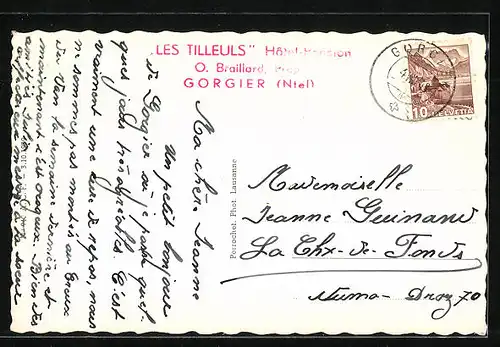 "LES TILLEULS" Hôtel-Pension
O. Braillard, Prop.
GORGIER (Ntel)
GORGIER
10 HELVETIA
Ma chère Jeanne
Un petit bonjour
de Gorgier où je passe quel-
ques jours très agréables. C'est
vraiment une cure de repos, nous
ne sommes pas montés au Creux
du Van la semaine dernière et
maintenant c'est orageux. Bien des
Perrochet. Phot. Lausanne
Mademoiselle
Jeanne Guinand
La Chx-de-Fonds
Numa-Droz 70